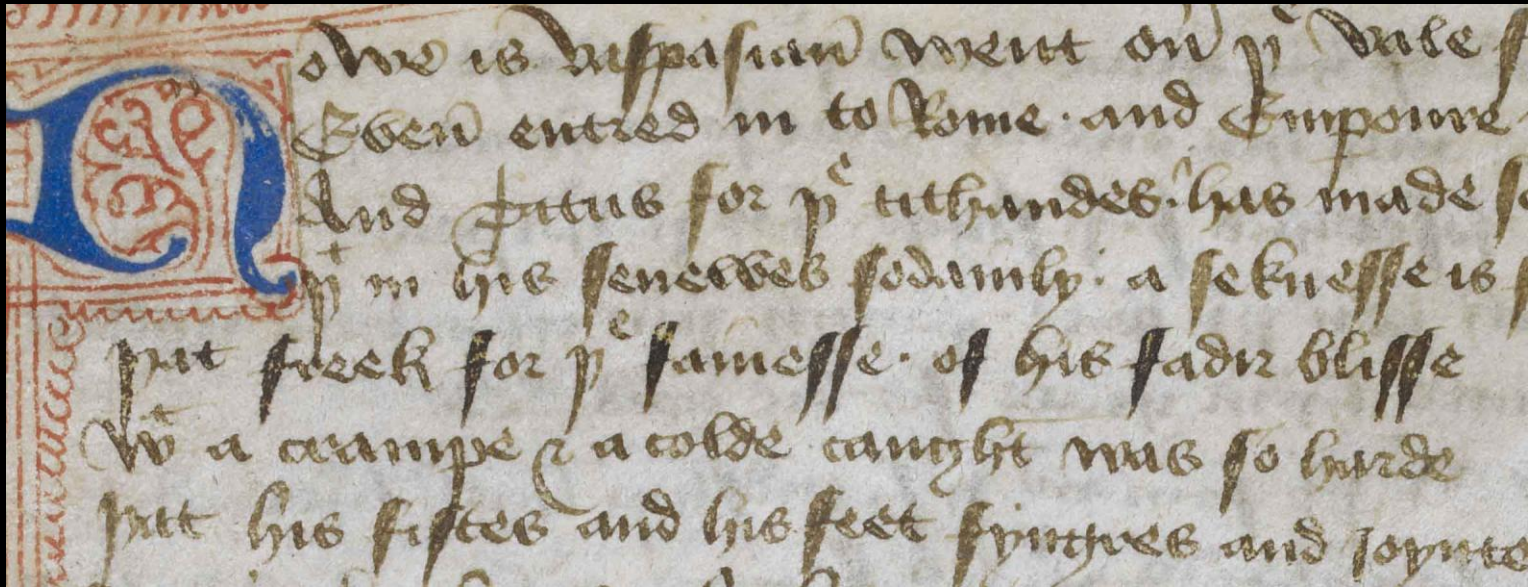 Nowe is vaspasiañ went oũ þͤ vale
Eveñ entred in to Rome · and Empoure
And Titus for þͤ tithandes · has made
þͭ in his senewes sodainly · a seknesse is
þat freek for þͤ fainesse · of his fadir blisse
wͭ a crampe & a colde caught was so harde
þat his fistes and his feet fyngres and joynte